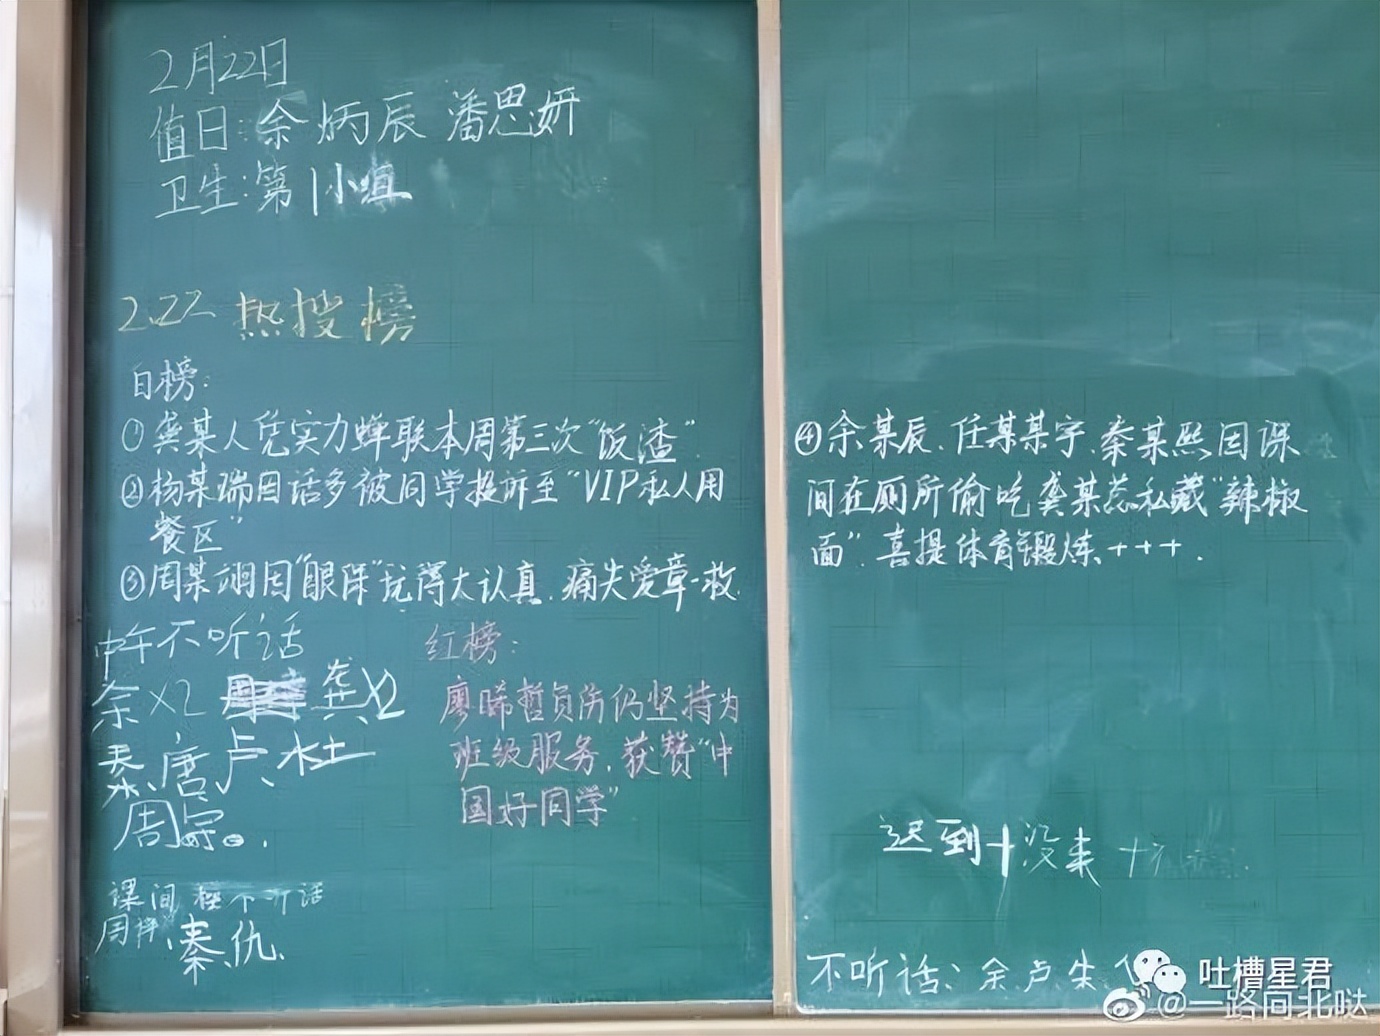 2月22日
值日:余炳辰 潘思妍
卫生:第1小组
2.22 热搜榜
白榜:
①龚某人凭实力蝉联本周第三次“饭渣”
②杨某瑞因话多被同学投诉至“VIP私人用
餐区”
③周某翊因“眼保”玩得太认真,痛失爱章一枚
中午不听话
余×2 龚×2
秦、唐、卢、杜
周宗。
课间 不听话
周 、秦仇
红榜:
廖晞哲负伤仍坚持为
班级服务,获赞“中
国好同学”
④余某辰、任某某宇、秦某熙因课
间在厕所偷吃龚某蕊私藏“辣椒
面”,喜提体育锻炼+++.
迟到+没来+
不听话:余卢朱
吐槽星君
@一路向北哒